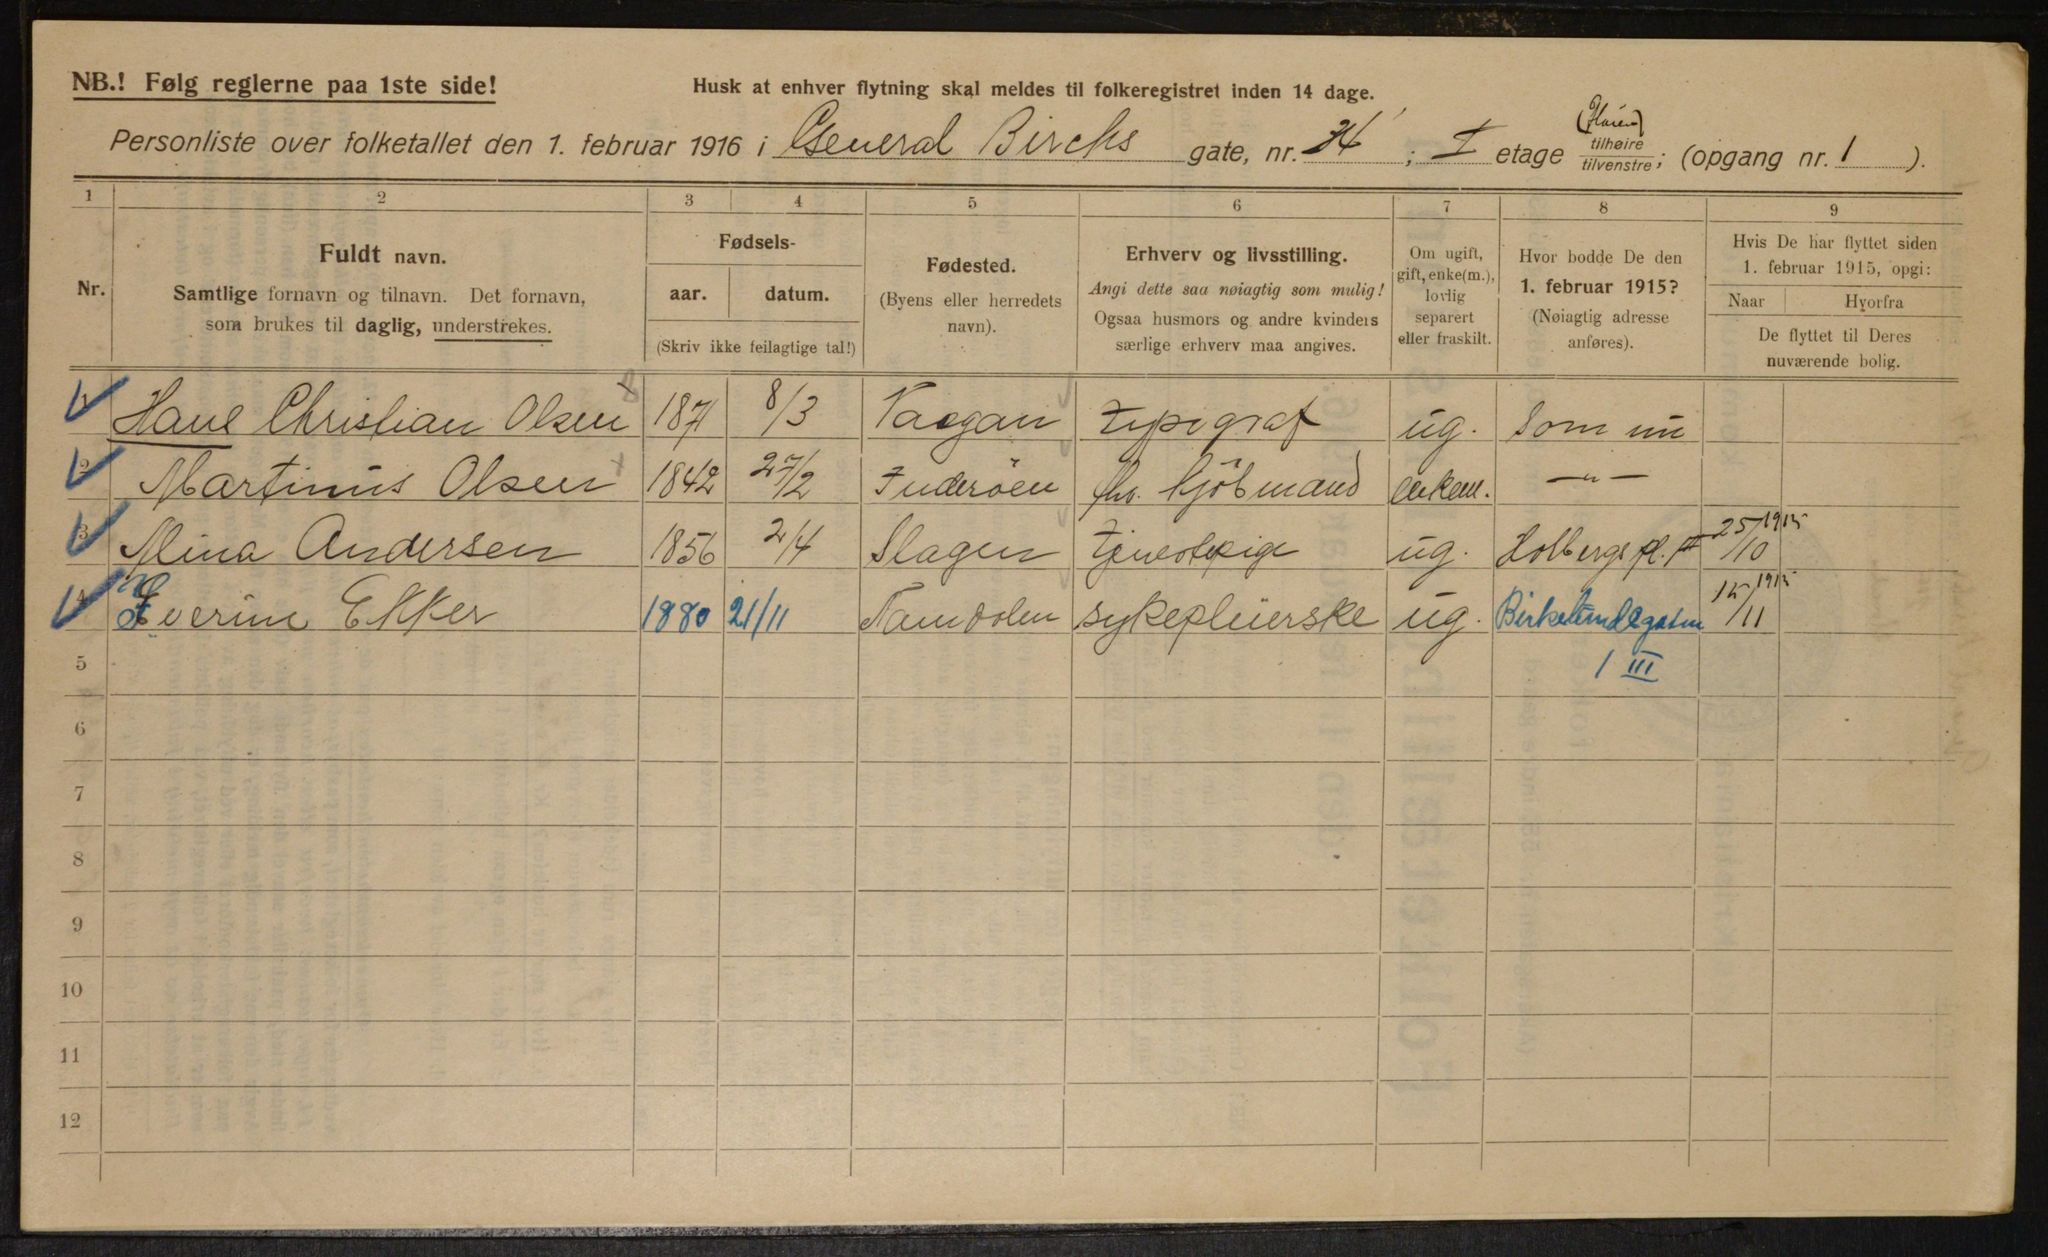 NB.! Følg reglerne paa 1ste side!
Husk at enhver flytning skal meldes til folkeregistret inden 14 dage.
Personliste over folketallet den 1. februar 1916 i General Birchs gate, nr. ; I etage tilhøire tilvenstre; (opgang nr. 1 ).
1 2 3 4 5 6 7 8 9
Nr.
Fuldt navn.
Samtlige fornavn og tilnavn. Det fornavn,
som brukes til daglig, understrekes.
Fødsels-
aar. datum.
(Skriv ikke feilagtige tal!)
Fødested.
(Byens eller herredets
navn).
Erhverv og livsstilling.
Angi dette saa nøiagtig som mulig!
Ogsaa husmors og andre kvinders
særlige erhverv maa angives.
Om ugift,
gift, enke(m.),
lovlig
separert
eller fraskilt.
Hvor bodde De den
1. februar 1915?
(Nøiagtig adresse
anføres).
Hvis De har flyttet siden
1. februar 1915, opgi:
Naar Hvorfra
De flyttet til Deres
nuværende bolig.
1 Hans Christian Olsen 1871 8/3 Vaagan Typograf ug. Som nu
2 Martinus Olsen 1842 27/2 Inderøen fhv. Kjøbmand enkem. — " —
3 Mina Andersen 1856 2/4 Slagen Tjenestepige ug. Holbergs pl. 25/10 1915
4 Everine Ekker 1880 21/11 Namdalen sykepleierske ug. Birkelundegaten 15/11 1915
1 III
5
6
7
8
9
10
11
12